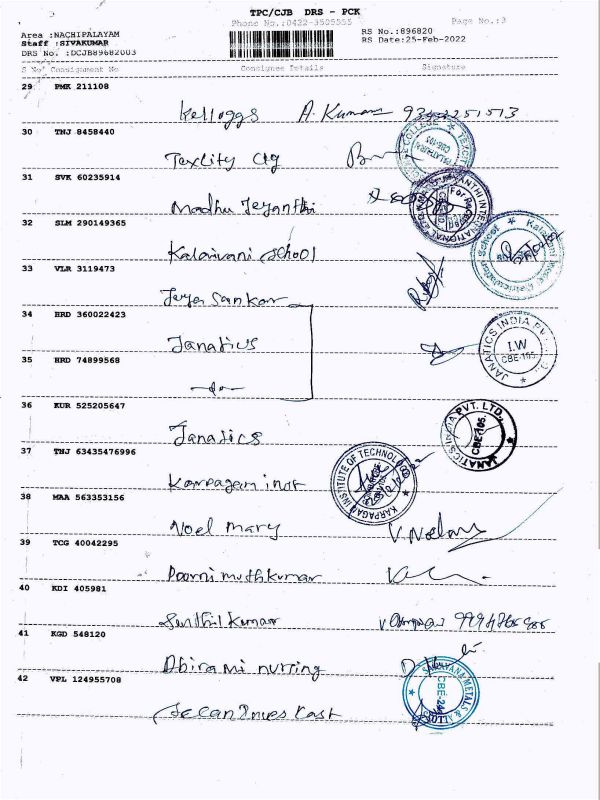 TPC/CJB DRS - PCK
Phone No.:0422-3505555 Page No.:3
Area :NACHIPALAYAM RS No.:896820
Staff :SIVAKUMAR RS Date:25-Feb-2022
DRS No. :DCJB89682003
S No Consignment No Consignee Details Signature
29 PMK 211108
Kelloggs A. Kumar
30 TNJ 8458440
Texcity Clg
31 SVK 60235914
Madhu Jeyanthi
32 SLM 290149365
Kalaivani School
33 VLR 3119473
Jeya Sankar
34 HRD 360022423
Janatics
JANATICS INDIA PVT. LTD.
I.W
CBE-105.
35 HRD 74899568
-do-
36 KUR 525205647
Janatics
JANATICS INDIA PVT. LTD.,
CBE-105.
37 TNJ 63435476996
Karpagam inst
KARPAGAM INSTITUTE OF TECHNOLOGY
38 MAA 563353156
Noel mary V. Noelmary
39 TCG 40042295
Poorni muthkumar
40 KDI 405981
Senthil kumar
41 KGD 548120
Abirami nursing
42 VPL 124955708
METALS & ALLOYS